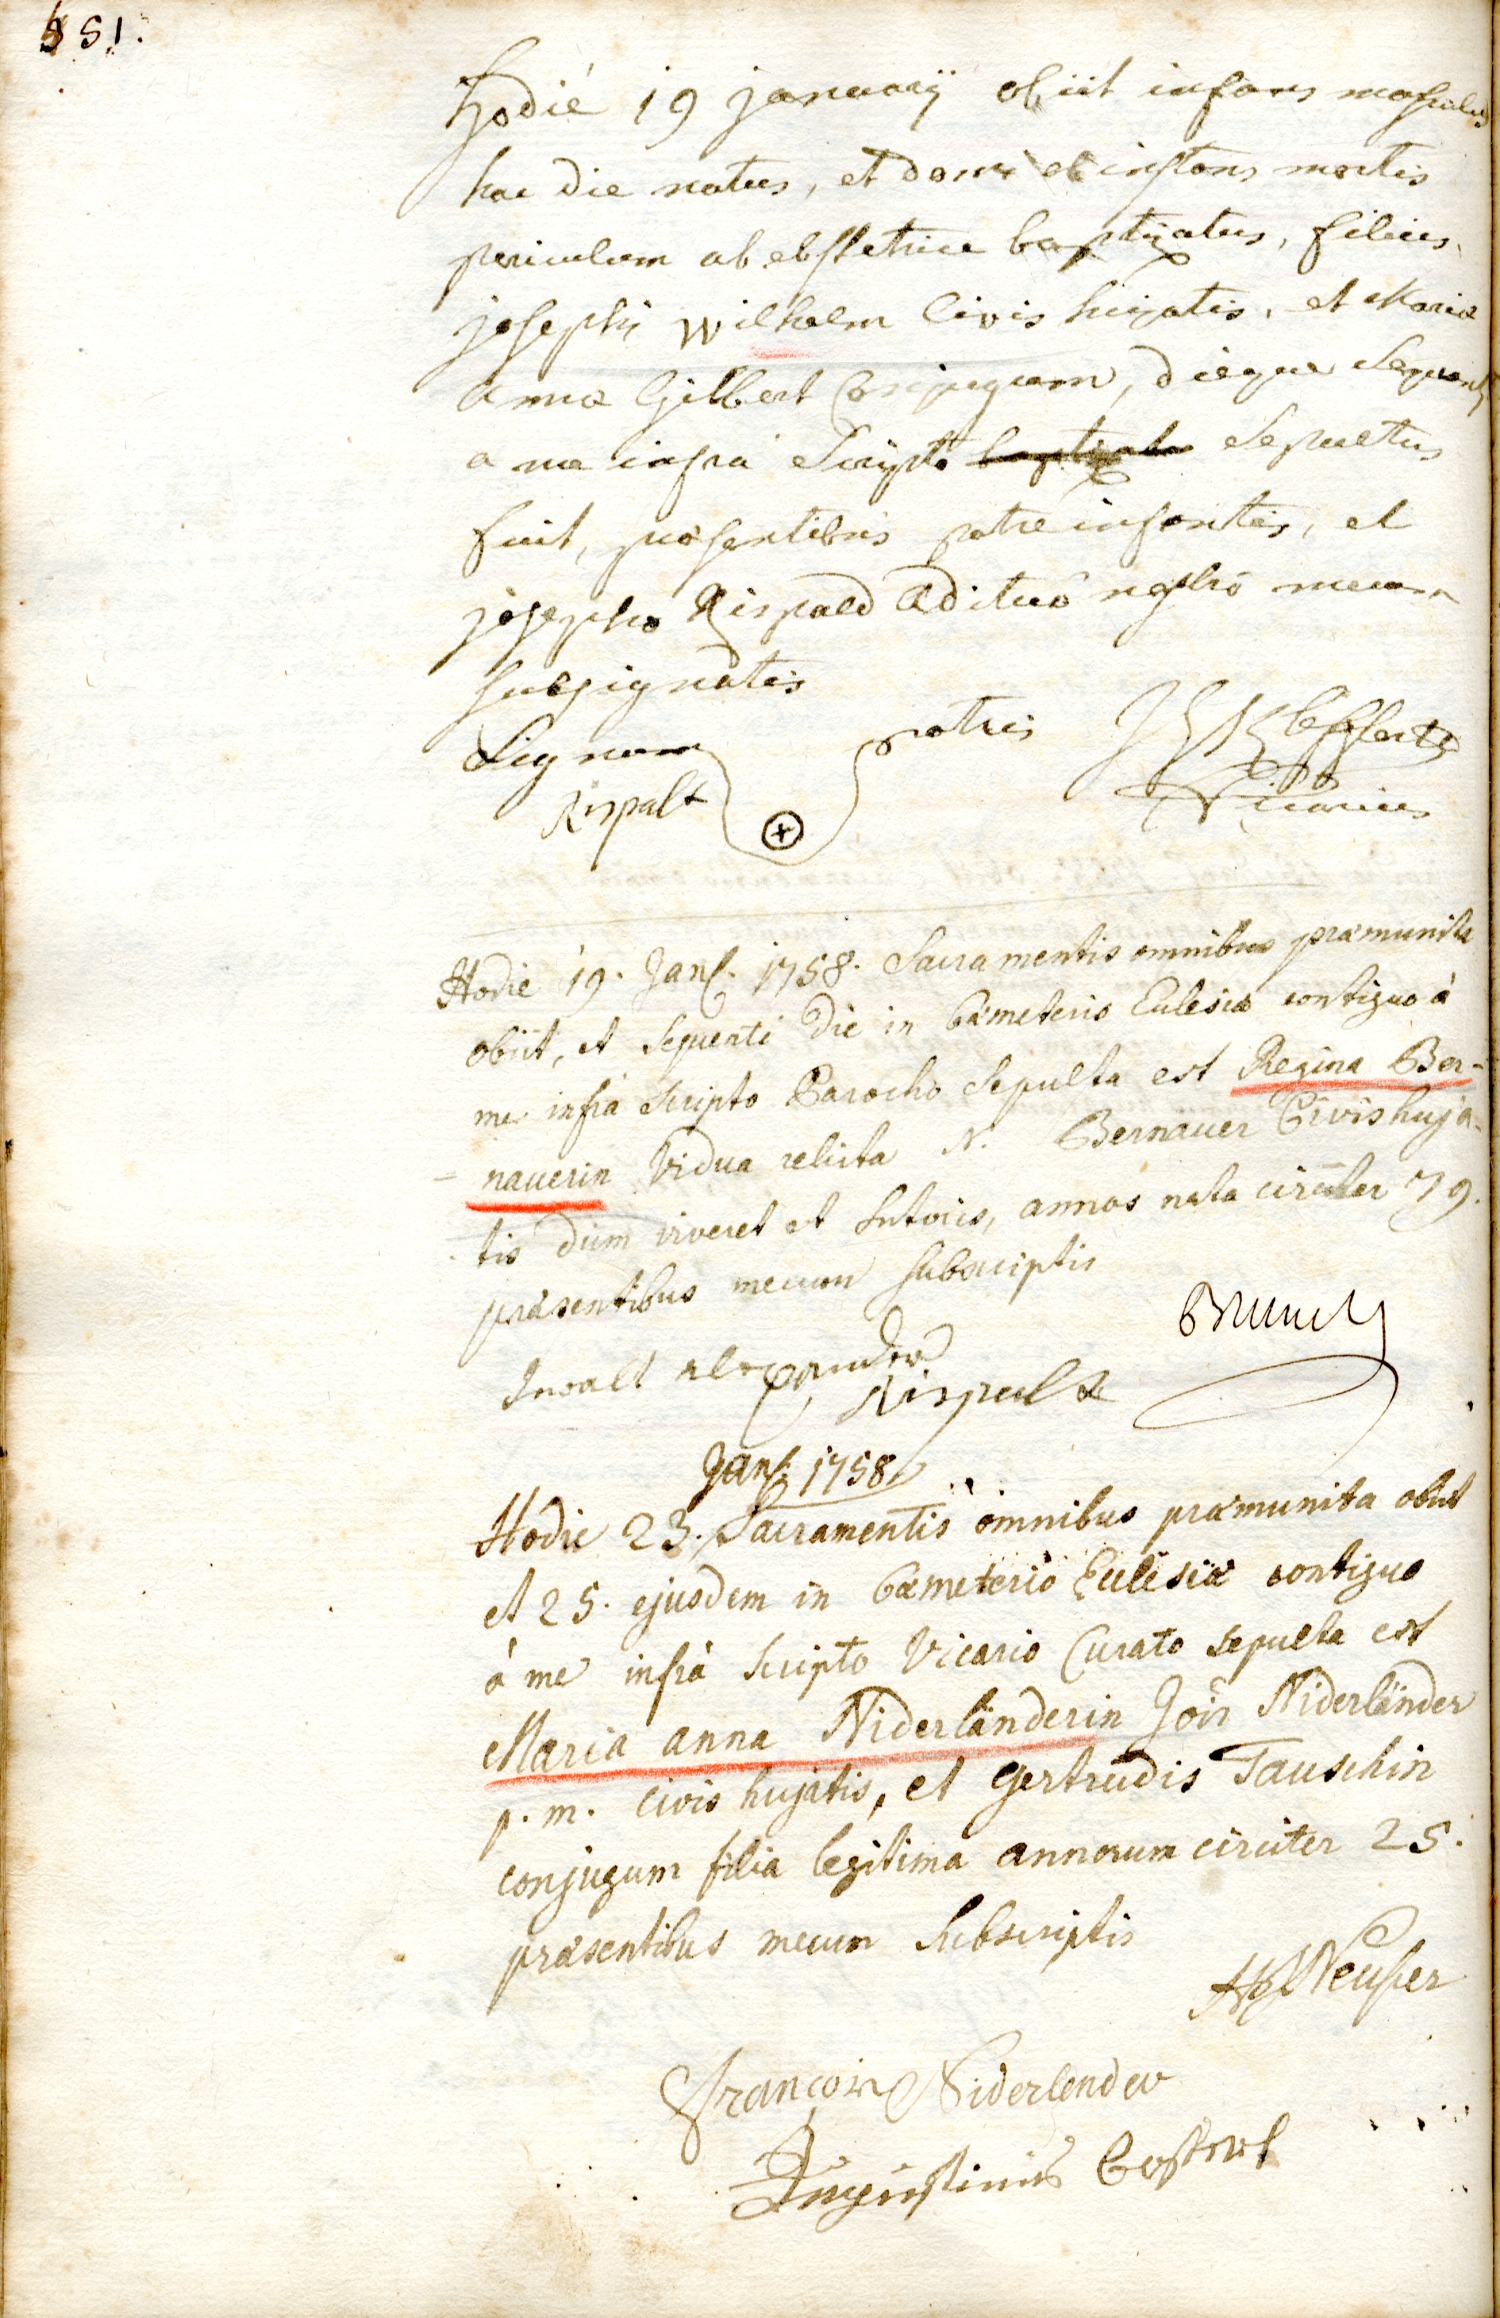 551.
Hodié 19 januarÿ obiit infans masculus
hac die natus, et domi ob instans mortis
periculum ab obstetrice baptizatus, filius
josephi Wilhelm Civis hujatis, et Mariæ
annæ Gilbert Conjugum, dieque Sequenti
a me infra Scripto baptizatus Sepultus
fuit, præsentibus patre infantis, et
josepho Rispald Ædituo nostro mecum
subsignatis
Signum patris
Rispalt
Vicarius
Hodie 19. Jan. 1758. Sacramentis omnibus præmunita
obiit, et sequenti die in Cœmeterio Eclesiæ contiguo à
me infrà scripto Parocho sepulta est Regina Ber-
nauerin Vidua relicta N. Bernauer Civis huja-
tis dum viveret et Sutoris, annos nata circiter 79.
præsentibus mecum subscriptis
alexander
Rispalt
Jan. 1758
Hodie 23. Sacramentis omnibus præmunita obiit
et 25. ejusdem in Cœmeterio Eclesiæ contiguo
à me infrà scripto Vicario Curato sepulta est
Maria anna Niderländerin Jois Niderländer
p. m. civis hujatis, et Gertrudis Tauschin
conjugum filia legitima annorum circiter 25.
præsentibus mecum subscriptis
Neusser
François Niderlender
Augustinus